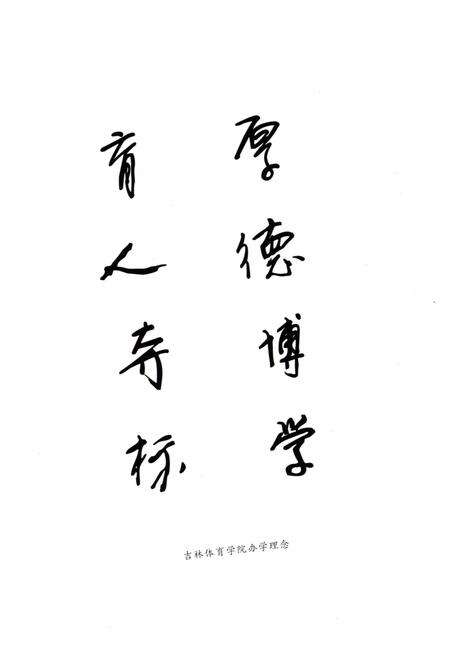 厚德博学
育人夺标
吉林体育学院办学理念